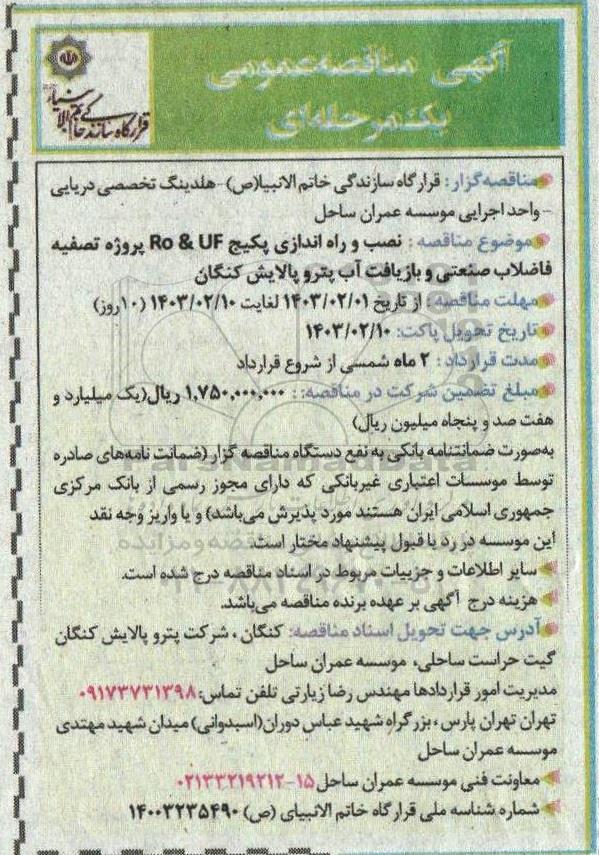 آگهی مناقصه عمومی
یک مرحله‌ای
قرارگاه سازندگی خاتم الانبیاء
مناقصه‌گزار: قرارگاه سازندگی خاتم الانبیا(ص)-هلدینگ تخصصی دریایی
- واحد اجرایی موسسه عمران ساحل
موضوع مناقصه: نصب و راه اندازی پکیج Ro & UF پروژه تصفیه
فاضلاب صنعتی و بازیافت آب پترو پالایش کنگان
مهلت مناقصه: از تاریخ ۱۴۰۳/۰۲/۰۱ لغایت ۱۴۰۳/۰۲/۱۰ (۱۰روز)
تاریخ تحویل پاکت: ۱۴۰۳/۰۲/۱۰
مدت قرارداد: ۲ ماه شمسی از شروع قرارداد
مبلغ تضمین شرکت در مناقصه:: ۱,۷۵۰,۰۰۰,۰۰۰ ریال(یک میلیارد و
هفت صد و پنجاه میلیون ریال)
به‌صورت ضمانتنامه بانکی به نفع دستگاه مناقصه گزار (ضمانت نامه‌های صادره
توسط موسسات اعتباری غیربانکی که دارای مجوز رسمی از بانک مرکزی
جمهوری اسلامی ایران هستند مورد پذیرش می‌باشد) و یا واریز وجه نقد
این موسسه در رد یا قبول پیشنهاد مختار است.
سایر اطلاعات و جزییات مربوط در اسناد مناقصه درج شده است.
هزینه درج آگهی بر عهده برنده مناقصه می‌باشد.
آدرس جهت تحویل اسناد مناقصه: کنگان، شرکت پترو پالایش کنگان
گیت حراست ساحلی، موسسه عمران ساحل
مدیریت امور قراردادها مهندس رضا زیارتی تلفن تماس: ۰۹۱۷۳۷۳۱۳۹۸
تهران تهران پارس، بزرگراه شهید عباس دوران(اسبدوانی) میدان شهید مهتدی
موسسه عمران ساحل
معاونت فنی موسسه عمران ساحل ۱۵-۰۲۱۳۳۲۱۹۲۱۲
شماره شناسه ملی قرارگاه خاتم الانبیای (ص) ۱۴۰۰۳۲۳۵۴۹۰
ParsNamadData